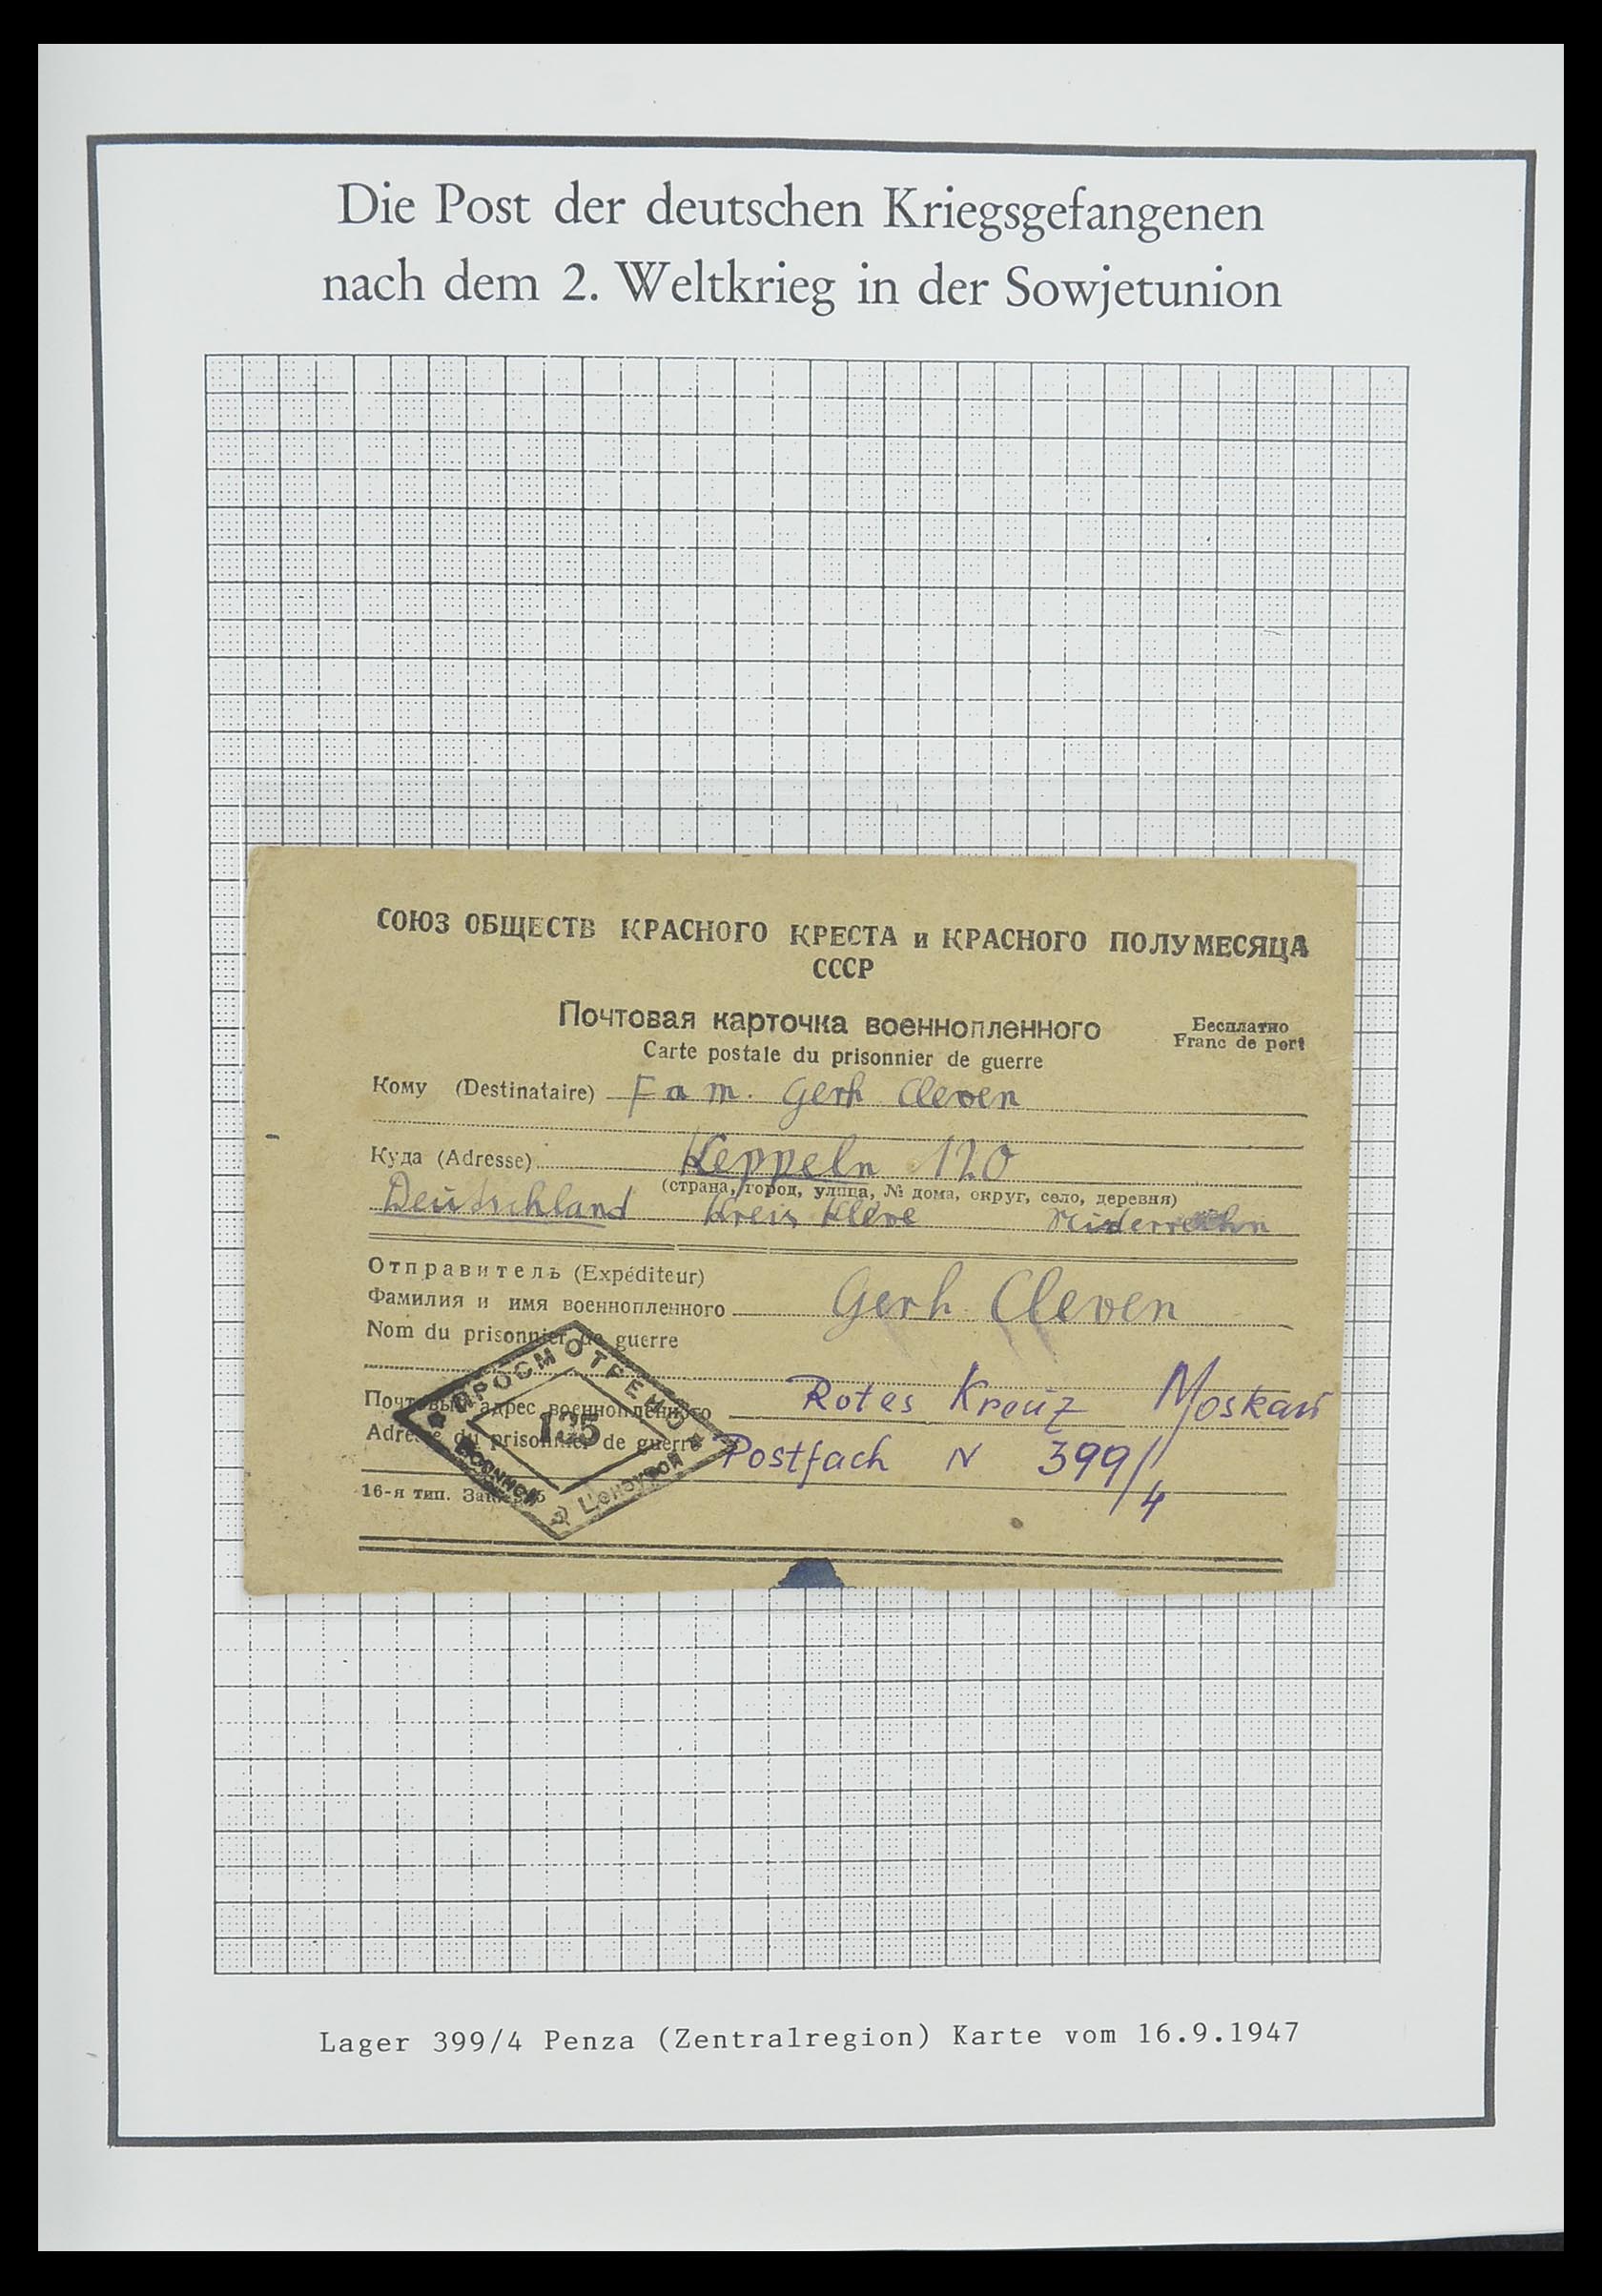 Die Post der deutschen Kriegsgefangenen
nach dem 2. Weltkrieg in der Sowjetunion
СОЮЗ ОБЩЕСТВ КРАСНОГО КРЕСТА и КРАСНОГО ПОЛУМЕСЯЦА
СССР
Почтовая карточка военнопленного
Бесплатно
Carte postale du prisonnier de guerre
Franc de port
Кому (Destinataire) Fam. Gerh Cleven
Куда (Adresse) Keppeln 120
(страна, город, улица, № дома, округ, село, деревня)
Deutschland Kreis Kleve
Отправитель (Expéditeur)
Фамилия и имя военнопленного Gerh Cleven
Nom du prisonnier de guerre
Почтовый адрес военнопленного Rotes Kreuz Moskau
Adresse du prisonnier de guerre Postfach N 399/4
16-я тип.
ПРОСМОТРЕНО
135
Военной Цензурой
Lager 399/4 Penza (Zentralregion) Karte vom 16.9.1947